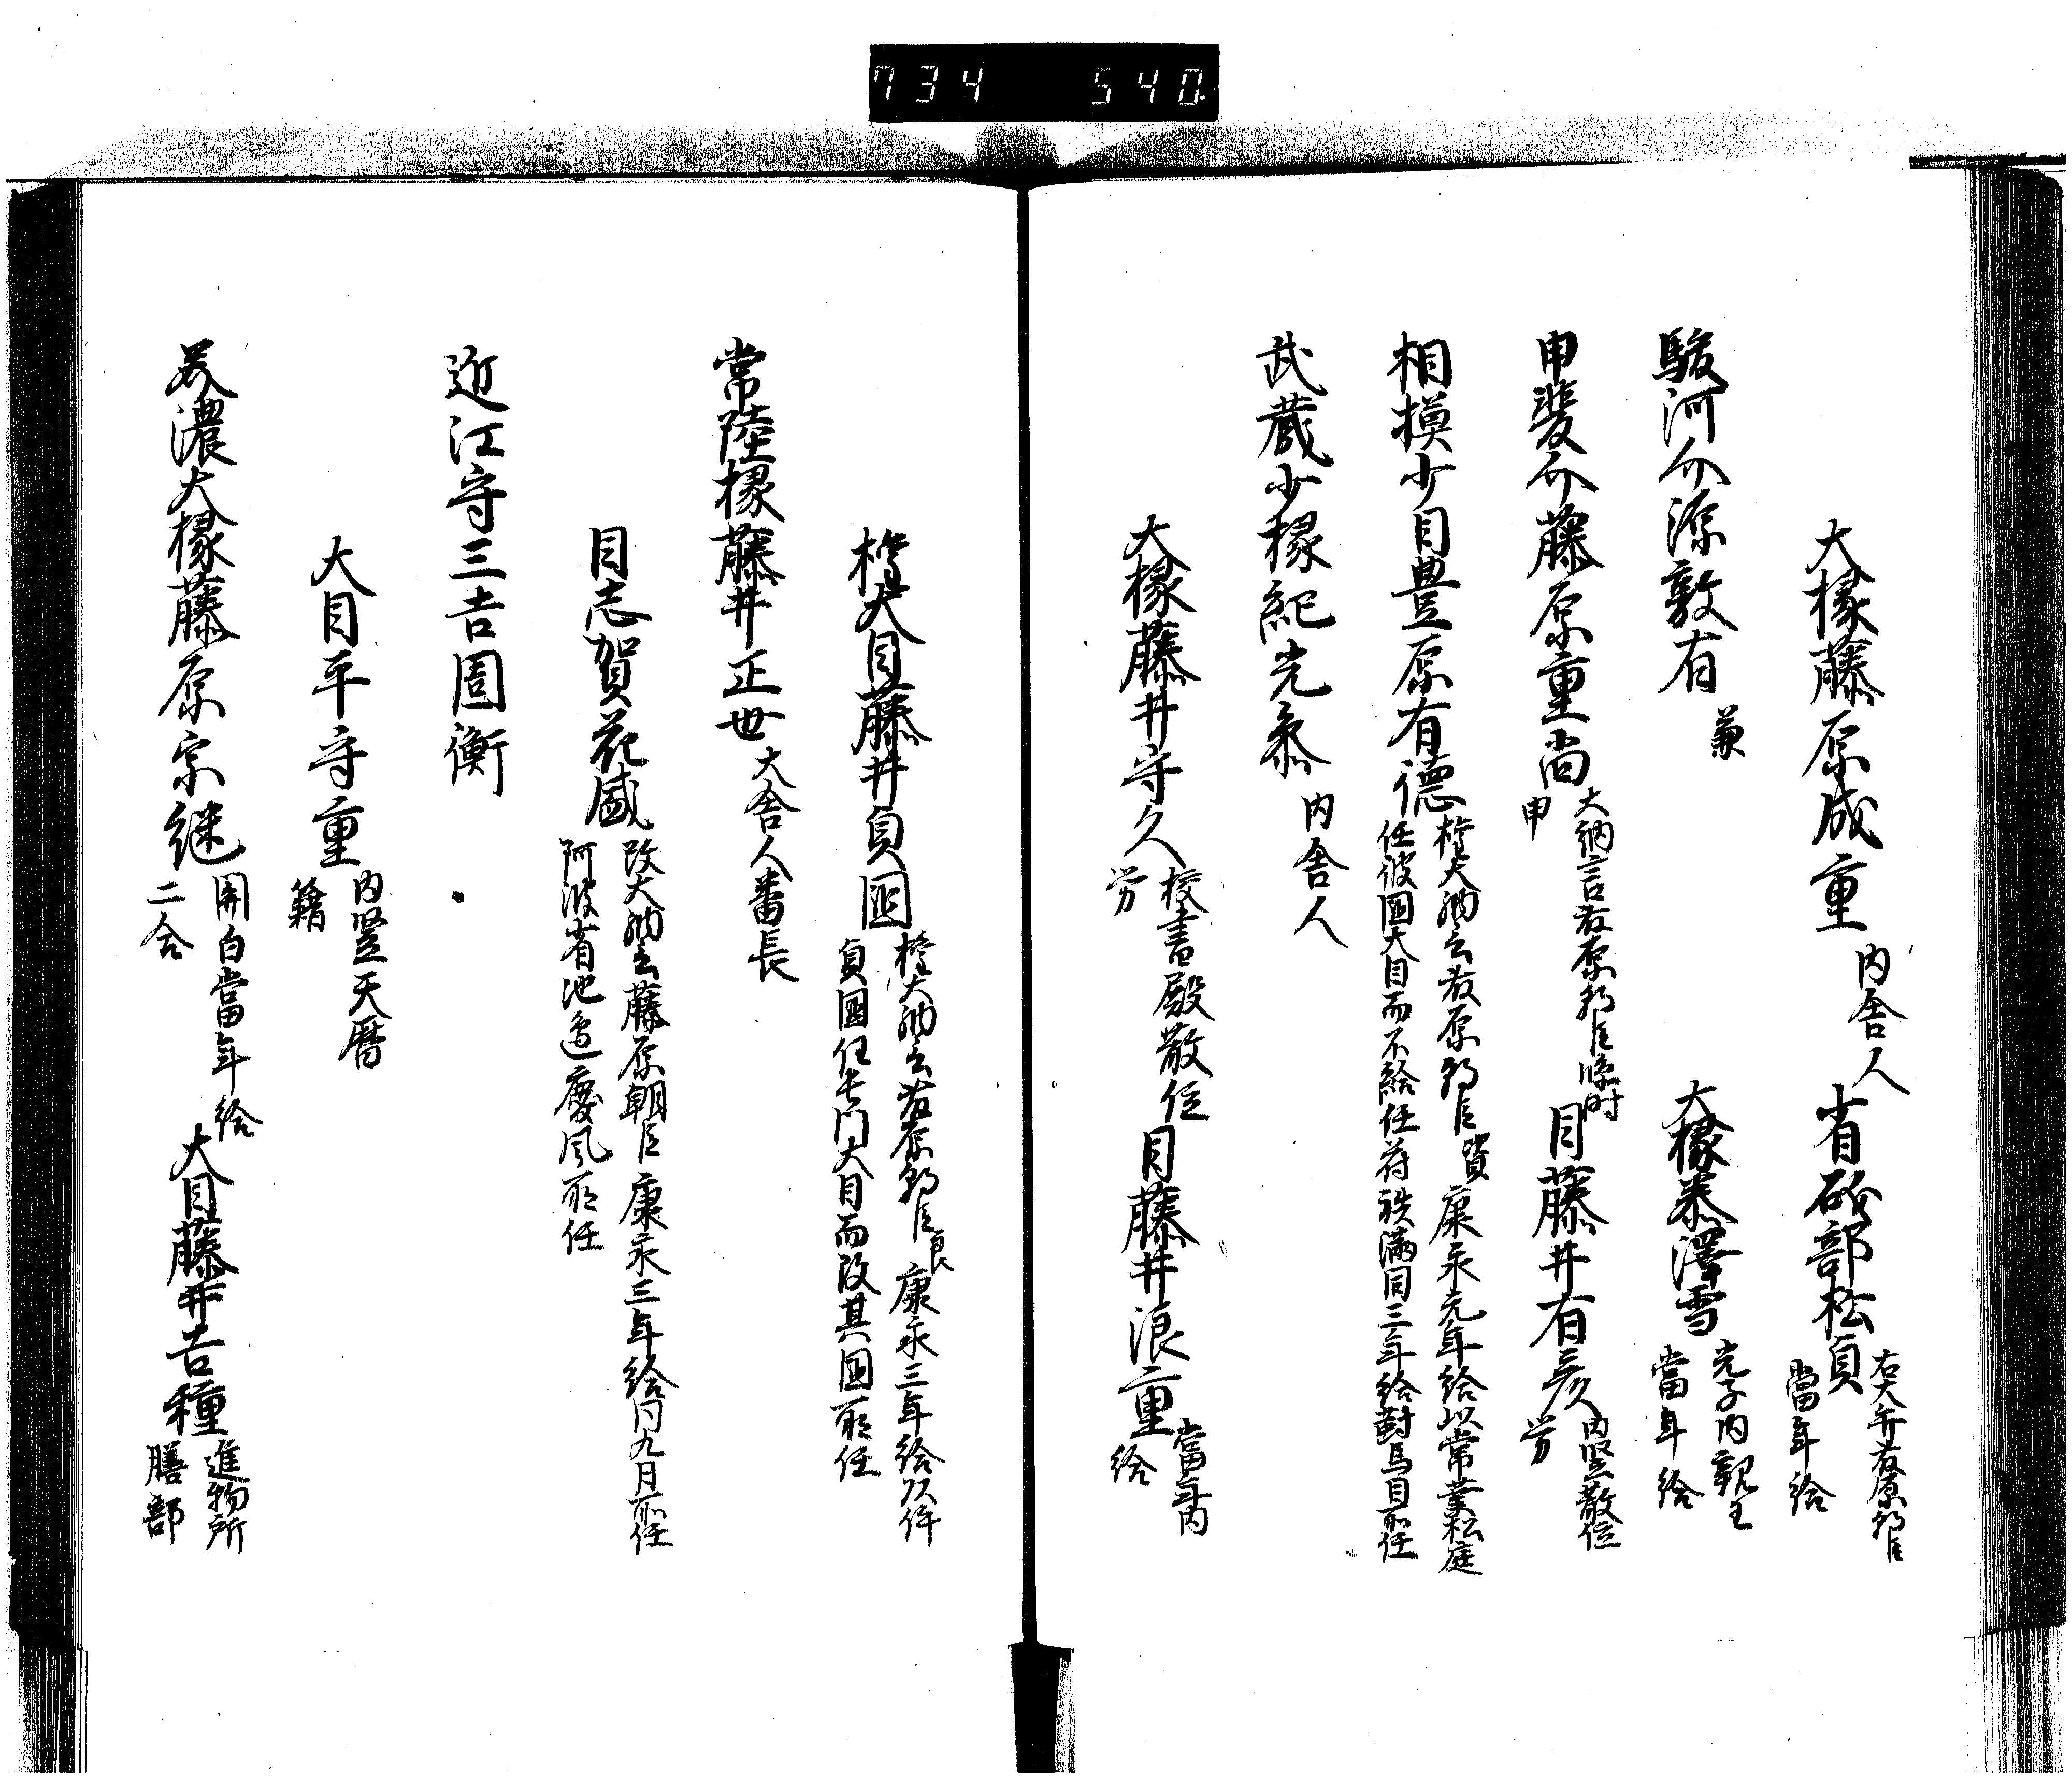 734 540
大掾藤原成重 内舎人 省礒部松負 右大弁藤原朝臣
當年給
駿河介源敦有 兼 大掾秦澤雪 光子内親王
當年給
甲斐介藤原重尚 大納言藤原朝臣臨時
申 目藤井有彦 内竪散位
労
相模少目豊原有徳 権大納言藤原朝臣資康永元年給以常業松庭
任彼國大目而不給任符秩満同三年給對馬目所任
武蔵少掾紀光泰 内舎人
大掾藤井守久 校書殿散位
労 目藤井浪重 當年内
給
権大目藤井負國 権大納言藤原朝臣良康永三年給以件
負國任長門大目而改其國所任
常陸掾藤井正世 大舎人番長
目志賀花盛 改大納言藤原朝臣康永三年給同九月所任
阿波省池邊慶風所任
近江守三吉周衡
大目平守重 内竪天暦
籍
美濃大掾藤原宗継 関白當年給
二合 大目藤井吉種 進物所
膳部